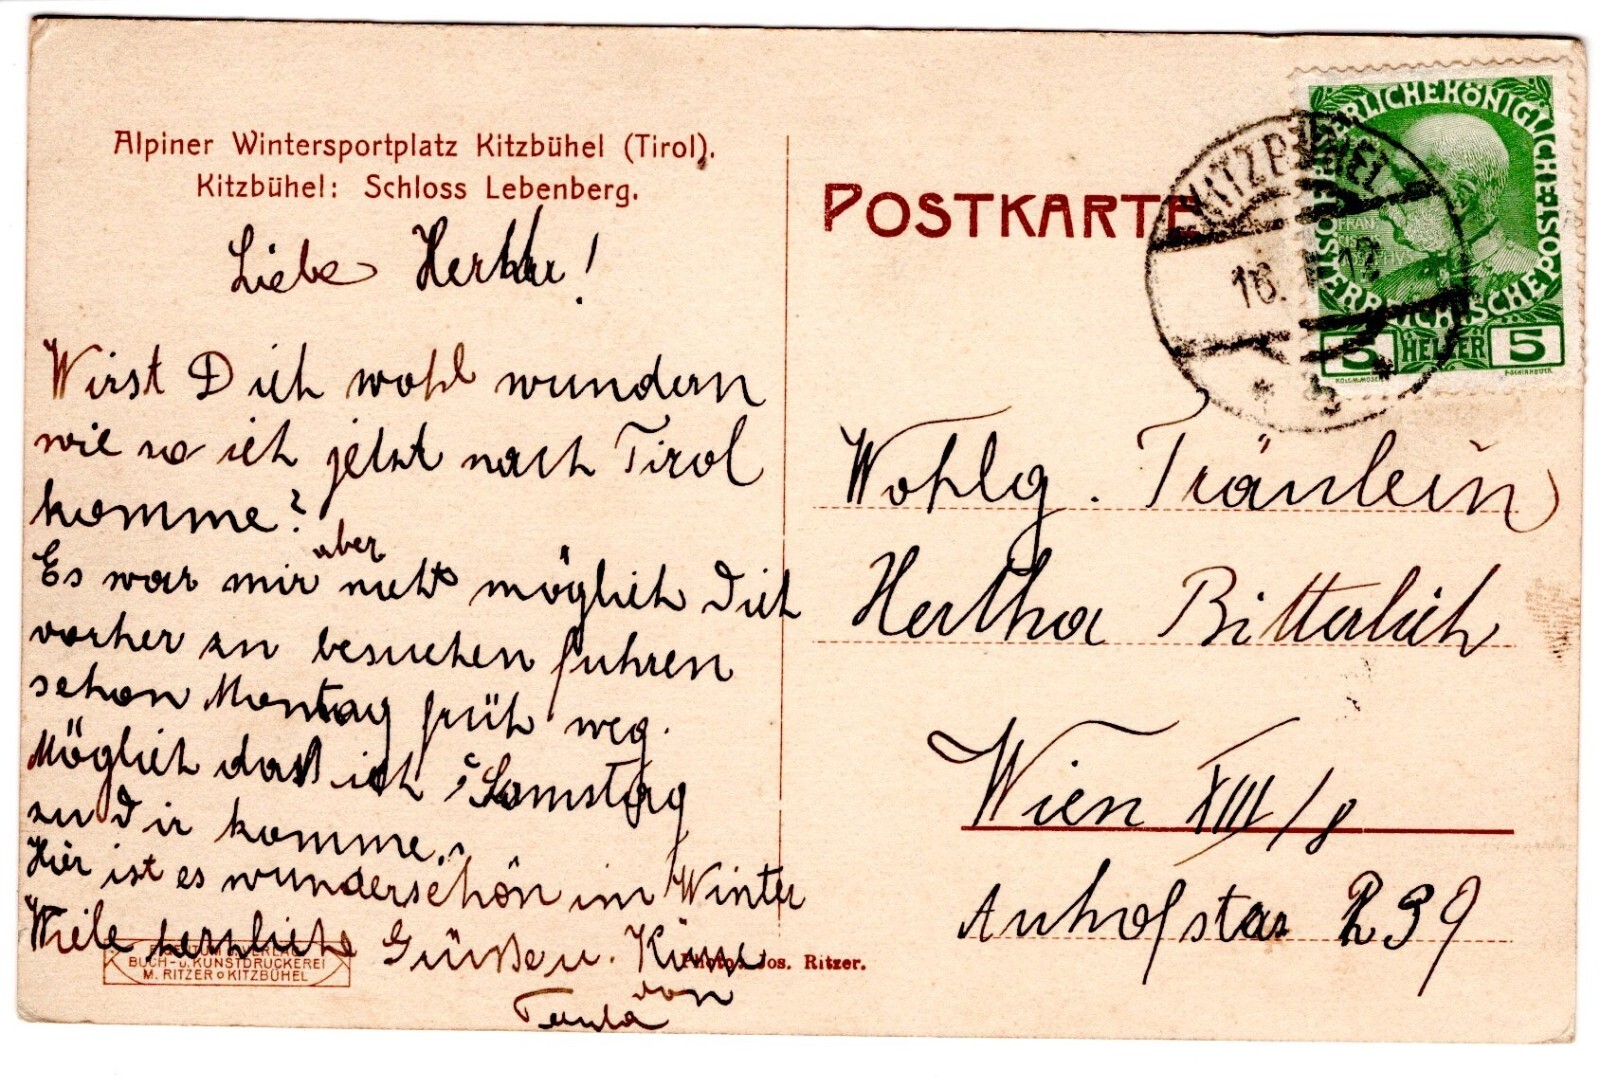 Alpiner Wintersportplatz Kitzbühel (Tirol).
Kitzbühel: Schloss Lebenberg.
Liebe !
Wirst Dich wohl wundern
wie so ich jetzt nach Tirol
komme?
aber
Es war mir nicht möglich Dich
vorher zu besuchen fuhren
schon Montag früh weg.
Möglich dass ich Samstag
zu Dir komme.
Hier ist es wunderschön im Winter
Viele herzliche Grüße u. Küsse
von
EIGENTUM U. VERLAG
BUCH- U. KUNSTDRUCKEREI
M. RITZER KITZBÜHEL
Photo: Jos. Ritzer.
POSTKARTE
KITZBÜHEL
16. 12
KAISERLICHE KÖNIGLICHE ÖSTERREICHISCHE POST
5 HELLER 5
Wohlg. Fräulein
Hertha Bitterlich
Wien XIII/8
Auhofstar 239